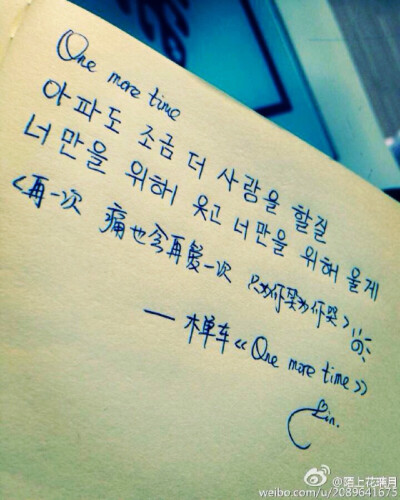 One more time
아파도 조금 더 사랑을 할걸
너만을 위해 웃고 너만을 위해 울게
<再一次 痛也会再爱一次 只为你哭为你哭>
一樺车《One more time》
Lin.
@陌上花璃月
weibo.com/u/2089641675